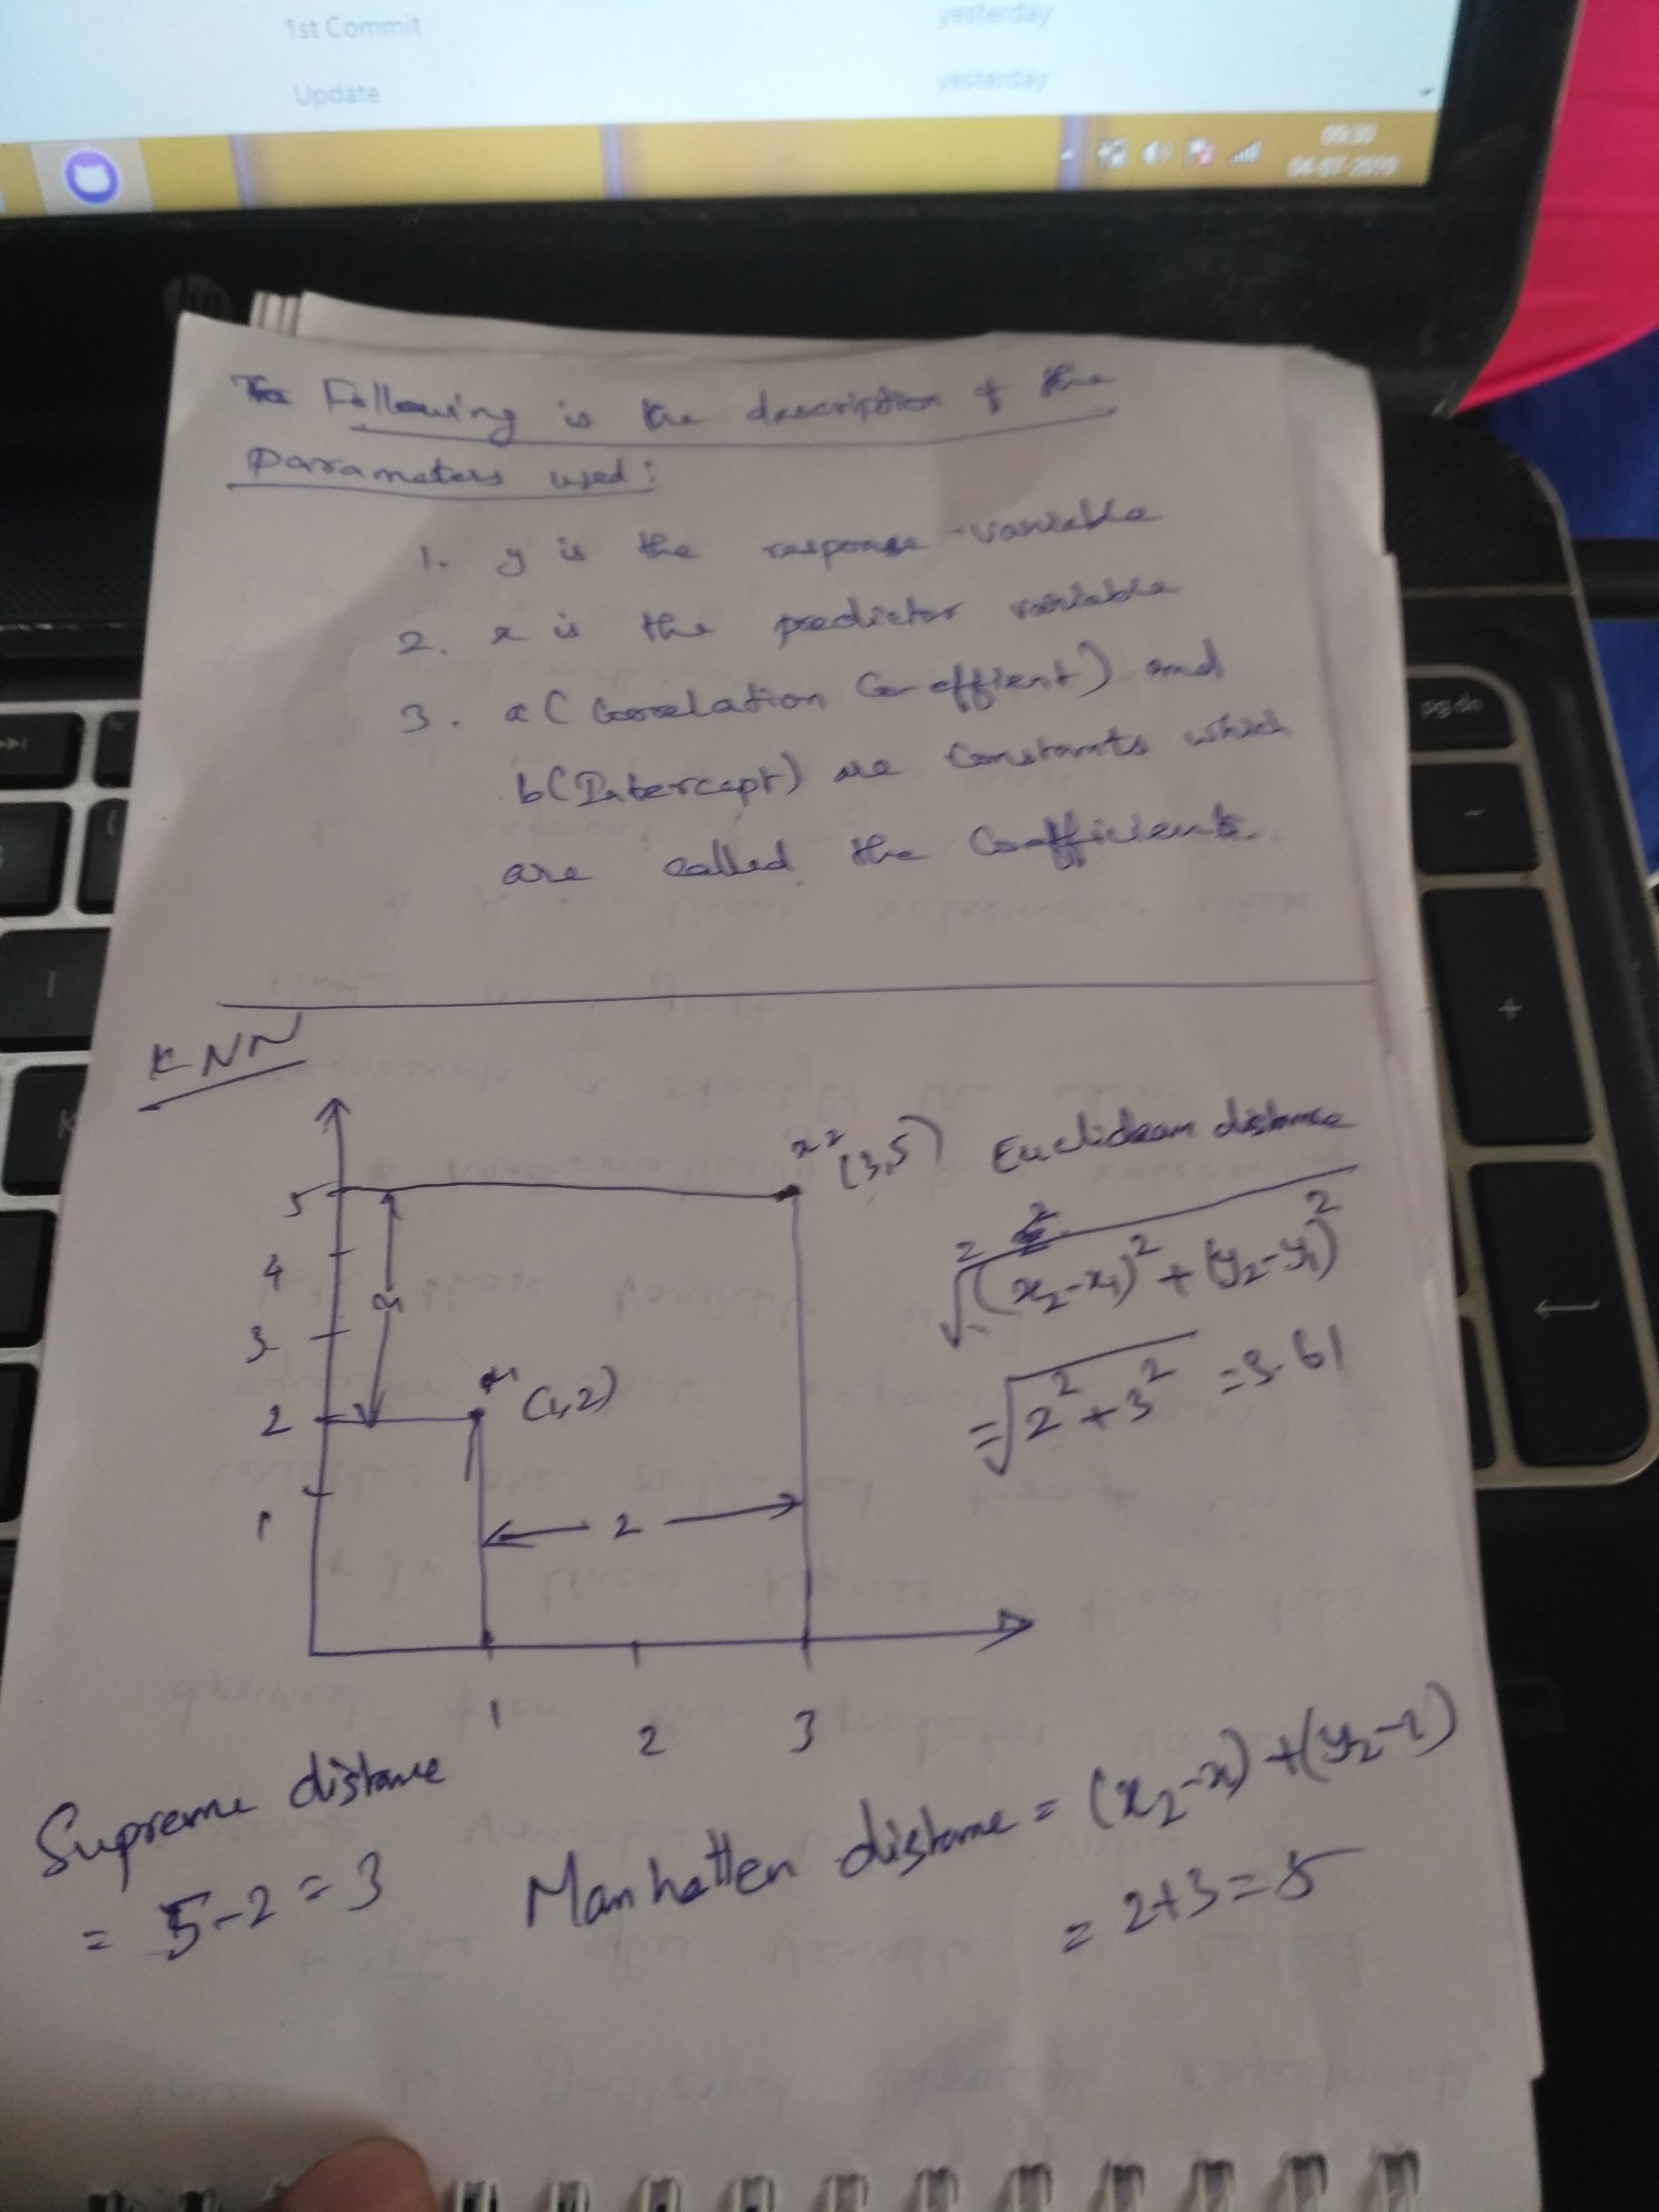 1st Commit yesterday
Update yesterday
09:39
04-07-2019
hp
Following is the description of the
Parameters used:
1. y is the response variable
2. x is the predictor variable
3. a (Correlation Co-effient) and
b (Intercept) are Constants which
are called the Coefficients.
KNN
x2 (3,5) Euclidean distance
5
4
3
2
1
3
x1 (1,2)
2
√(x₂-x₁)² + (y₂-y₁)²
= √2² + 3² = 3.61
1 2 3
Supreme distance
= 5-2 = 3
Manhatten distance = (x₂-x₁) + (y₂-1)
= 2+3 = 5
pg dn
-
+
K